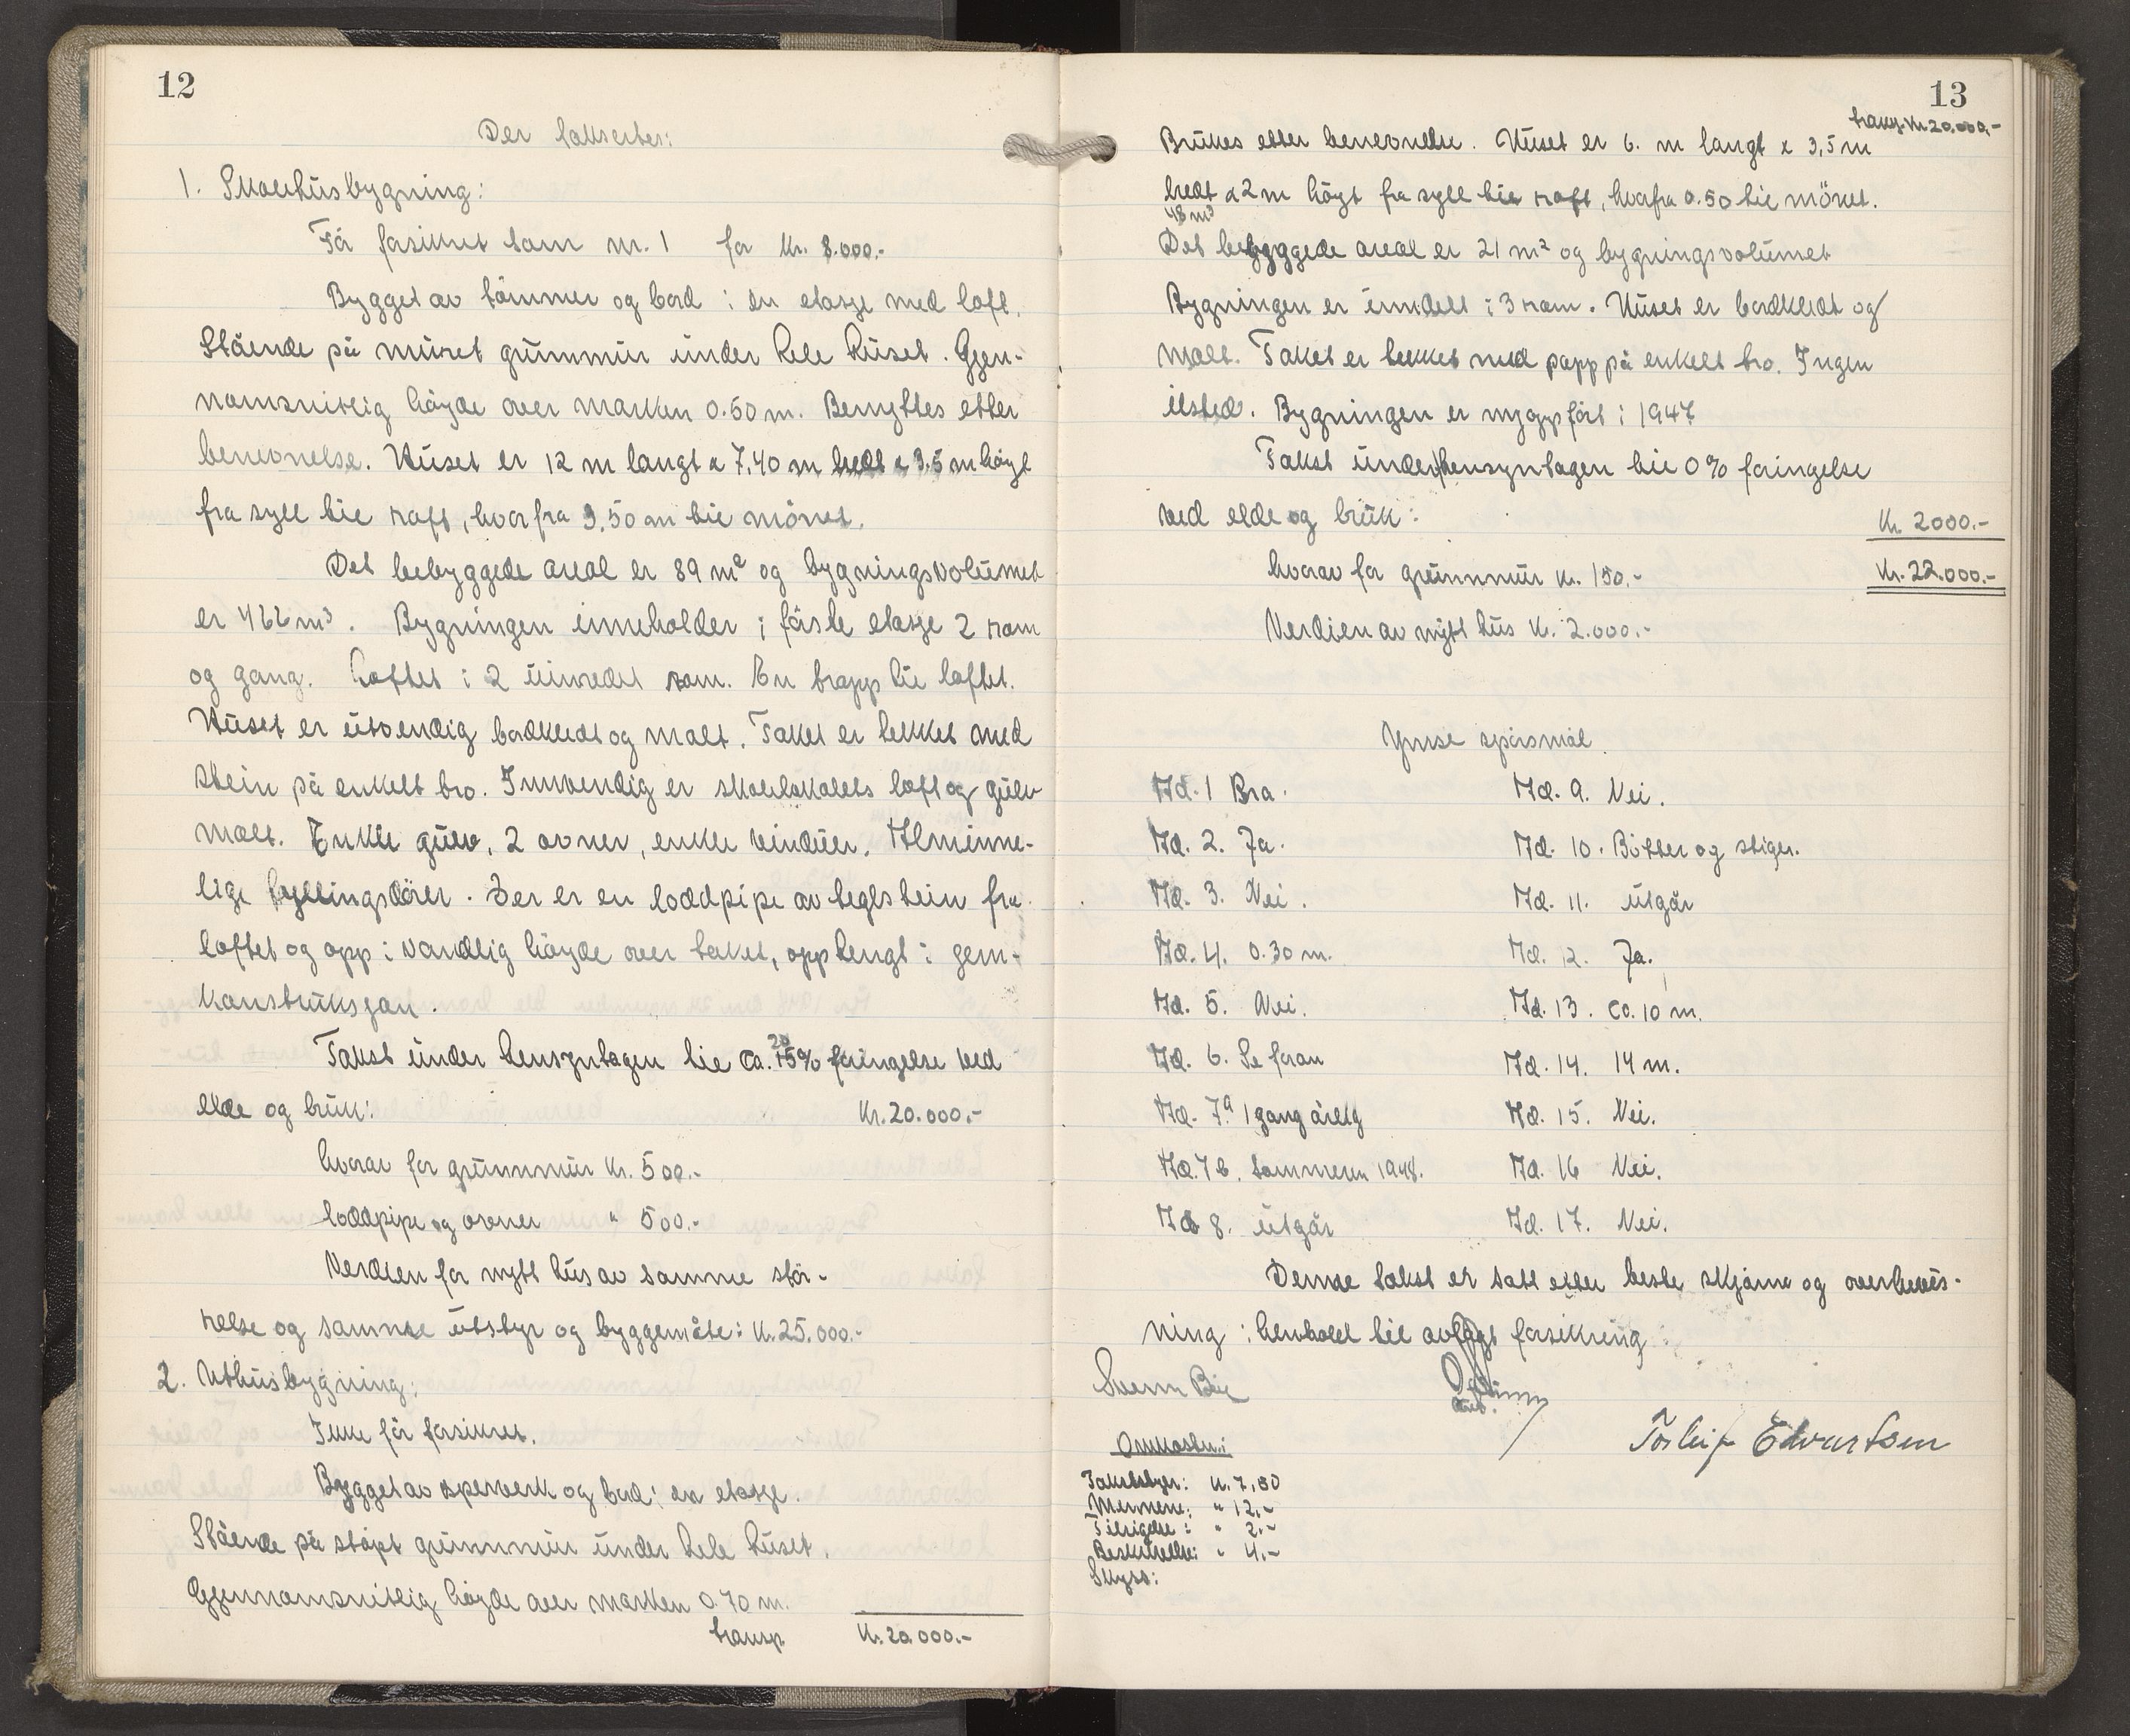 12
Der takseres:
1. Skolehusbygning:
Før forsikret som nr. 1 for kr. 8.000.-
Bygget av tømmer og bord i en etasje med loft.
Stående på muret grunnmur under hele huset. Gjen-
nomsnitlig høyde over marken 0.50 m. Benyttes etter
benevnelse. Huset er 12 m langt x 7,40 m bredt x 3,5 m høyt
fra syll til raft, hvorfra 3,50 m til mønet.
Det bebyggede areal er 89 m² og bygningsvolumet
er 466 m³. Bygningen inneholder i første etasje 2 rom
og gang. Loftet i 2 uinredet rom. En trapp til loftet.
Huset er utvendig bordkledt og malt. Taket er tekket med
stein på enkelt bro. Innvendig er skolelokalets loft og gulv
malt. Enkle gulv, 2 ovner, enkle vinduer. Alminne-
lige fyllingsdører. Der er en loddpipe av teglstein fra
loftet og opp i vandlig høyde over taket, opphengt i jern-
konstruksjon.
Takst under hensyntagen til ca. 20 15% foringelse ved
elde og bruk: Kr. 20.000,-
hvorav for grunnmur kr. 500.-
loddpipe og ovner " 500.-
Verdien for nytt hus av samme stør-
relse og samme utstyr og byggemåte: kr. 25.000.-
2. Uthusbygning:
Ikke før forsikret.
Bygget av sperverk og bord i en etasje.
Stående på støpt grunnmur under hele huset.
Gjennomsnitlig høyde over marken 0.70 m.
transp. Kr. 20.000.-
13
transp. kr 20.000,-
Brukes etter benevnelse. Huset er 6. m langt x 3,5 m
bredt x 2 m høyt fra syll til raft, hvorfra 0.50 til mønet.
48 m³
Det bebyggede areal er 21 m² og bygningsvolumet
Bygningen er inndelt i 3 rom. Huset er bordkledt og
malt. Taket er tekket med papp på enkelt bro. Ingen
ilsted. Bygningen er nyoppført i 1947
Takst under hensyntagen til 0% foringelse
ved elde og bruk: Kr. 2000.-
hvorav for grunnmur kr. 150.- Kr. 22.000.-
Verdien av nytt hus kr. 2.000.-
Ymse spørsmål.
Ad. 1 Bra. Ad. 9. Nei.
Ad. 2. Ja. Ad. 10. Bøtter og stiger.
Ad. 3. Nei. Ad. 11. utgår
Ad. 4. 0.30 m. Ad. 12. Ja.
Ad. 5. Nei. Ad. 13. ca. 10 m.
Ad. 6. Se foran Ad. 14. 14 m.
Ad. 7a 1 gang årlig Ad. 15. Nei.
Ad. 7 b. Sommeren 1948. Ad. 16 Nei.
Ad 8. utgår Ad. 17. Nei.
Denne takst er satt etter beste skjønn og overbevis-
ning i henhold til avlagt forsikring
Torleif Edvartsen
Omkostn.:
Takstbstyr: kr. 7,50
Mennene: " 12.-
Tilsigelse: " 2.-
Beskrivelse: " 4.-
Skyss: